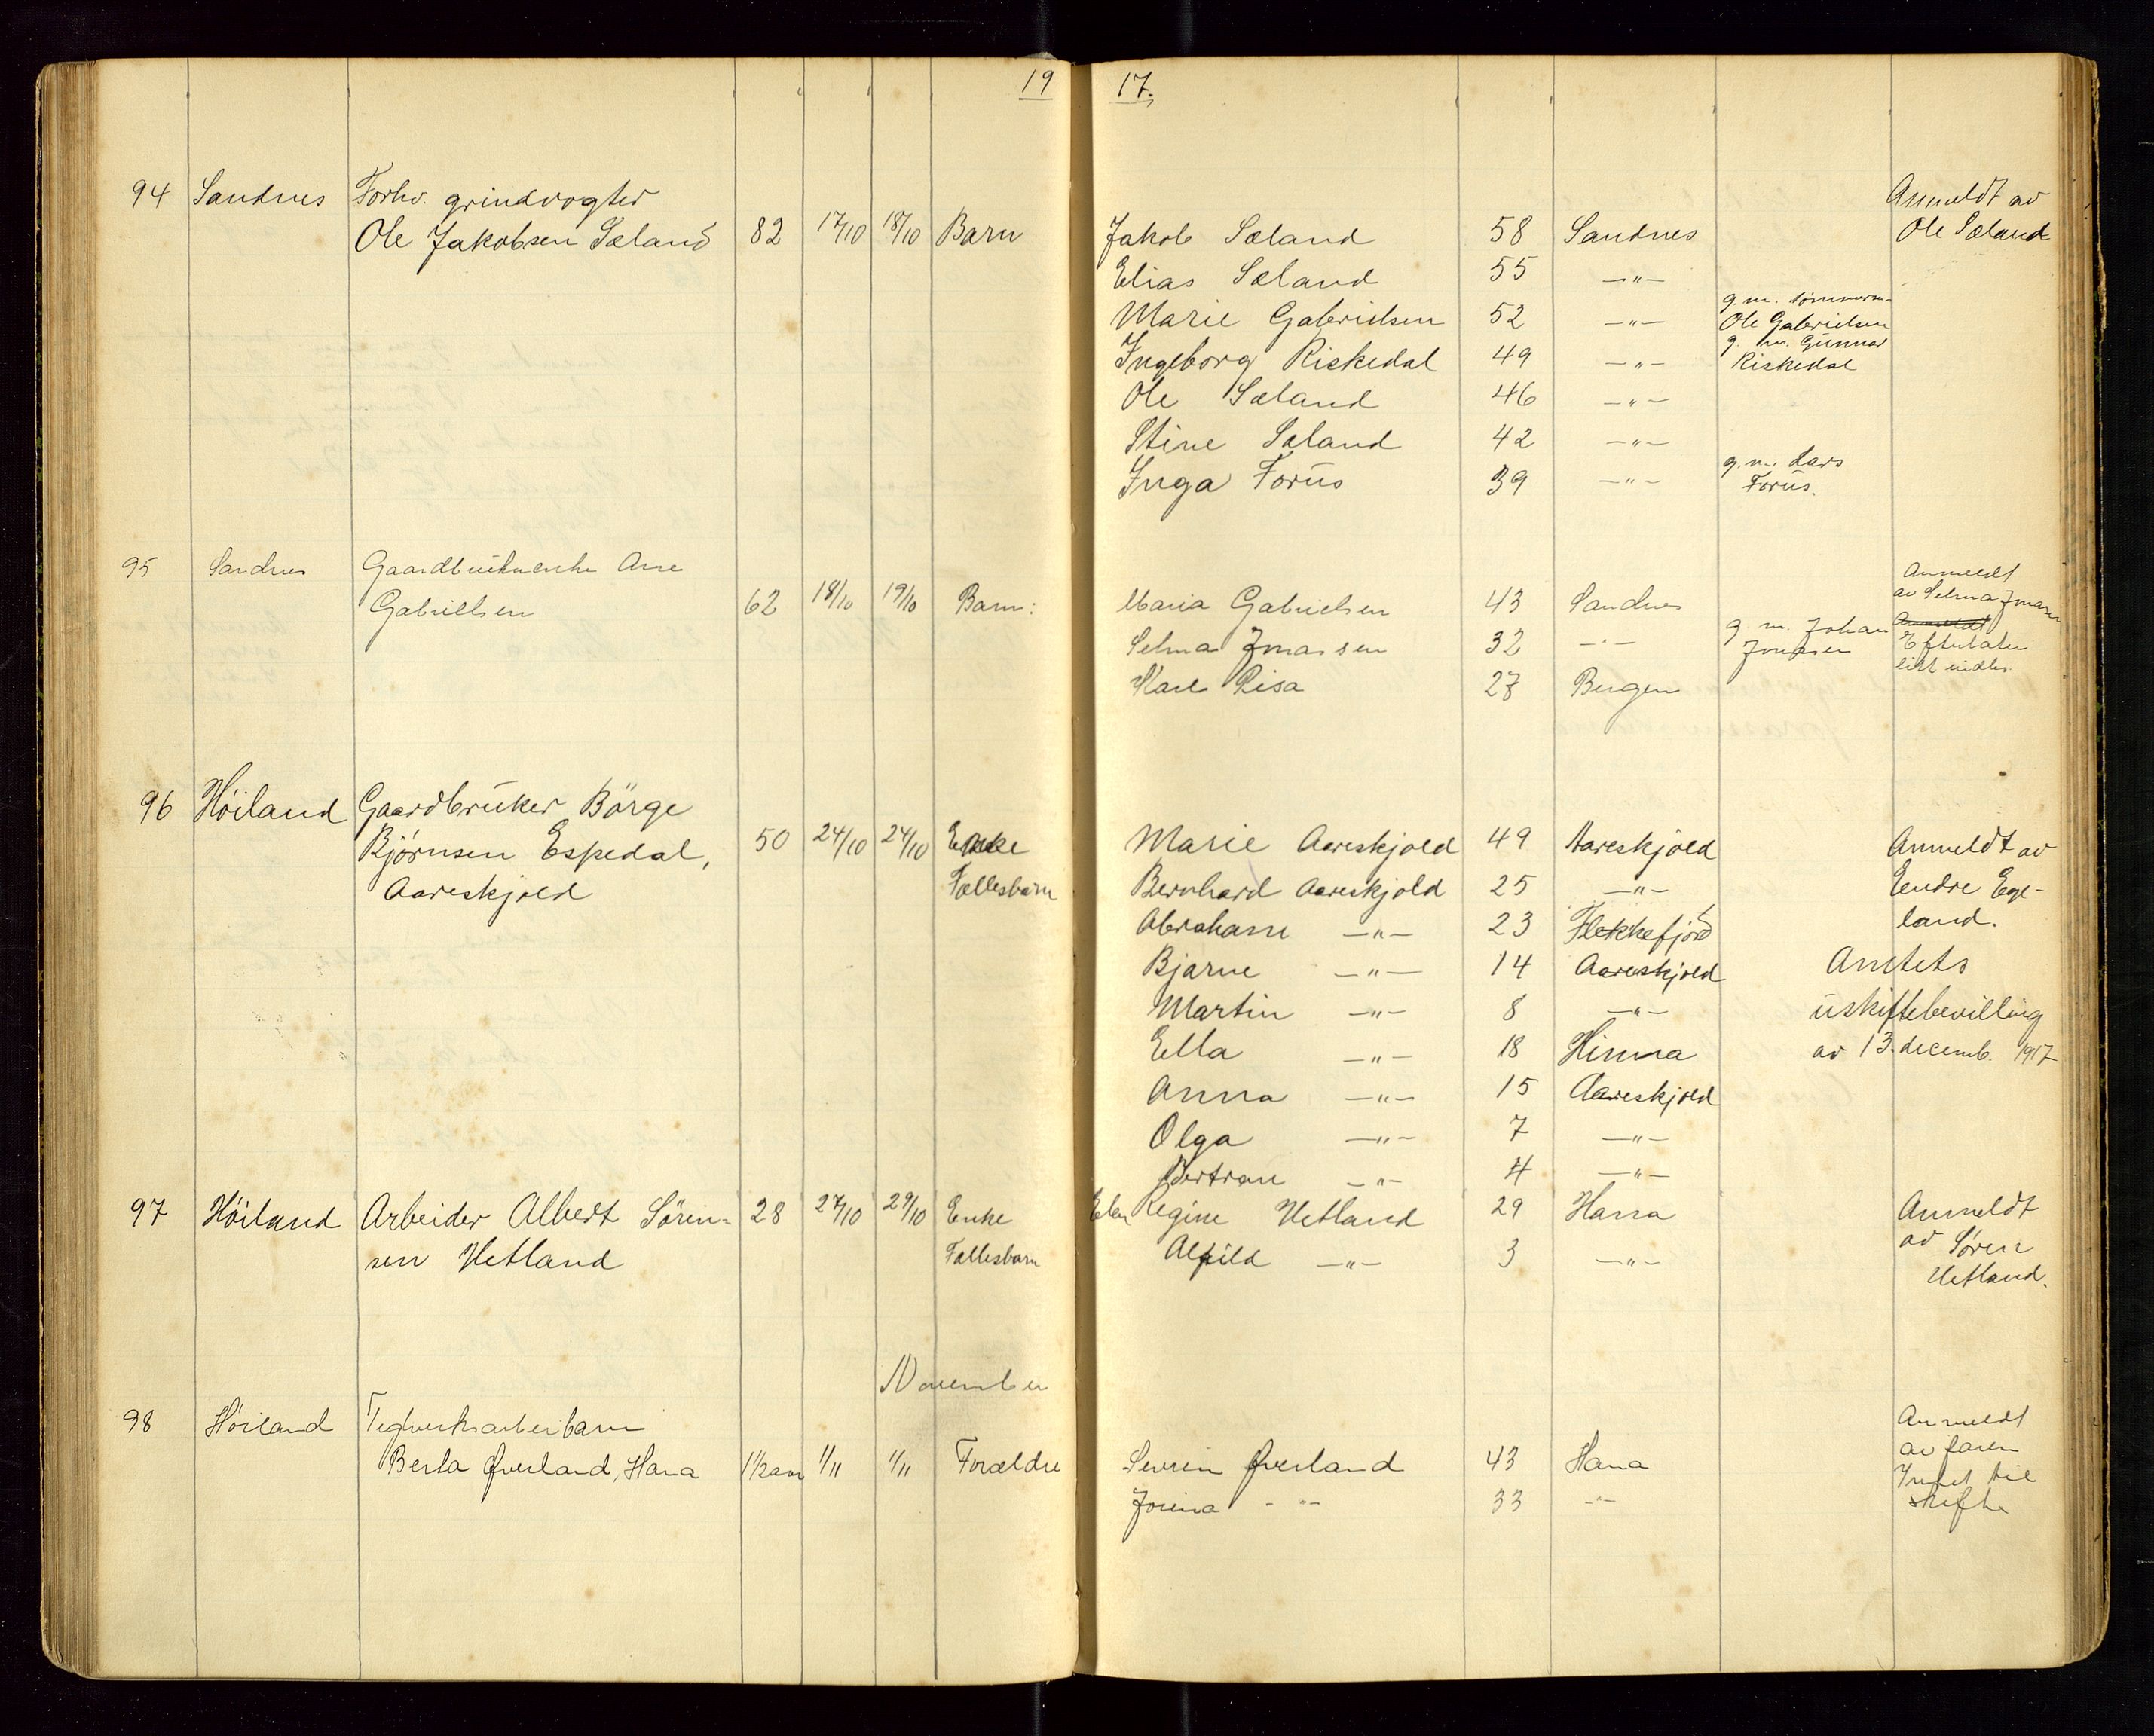 19 17.
94 Sandnes Forhv. grindvogter Anmeldt av
Ole Jakobsen Sæland 82 17/10 18/10 Barn Jakob Sæland 58 Sandnes Ole Sæland
Elias Sæland 55 —"—
Marie Gabrielsen 52 —"— g. m. tømmerm. Ole Gabrielsen
Ingeborg Riskedal 49 —"— g. m. Gunnar Riskedal
Ole Sæland 46 —"—
Stine Sæland 42 —"—
Inga Forus 39 —"— g. m. Lars Forus.
95 Sandnes Gaardbrukerenke Ane Anmeldt
Gabrielsen 62 18/10 19/10 Barn: Maria Gabrielsen 43 Sandnes av Selma Jonasen
Selma Jonassen 32 —"— g m. Johan Jonasen Anmeldt Efterlater
Karl Risa 27 Bergen litt indbo.
96 Höiland Gaardbruker Börge
Bjørnsen Espedal, 50 24/10 24/10 Enke Marie Aareskjold 49 Aareskjold Anmeldt av
Aareskjold Fællesbarn Bernhard Aareskjold 25 —"— Endre Ege-
Abraham —"— 23 Flekkefjord land.
Bjarne —"— 14 Aareskjold Amtets
Martin —"— 8 —"— uskiftebevilling
Ella —"— 18 Hinna av 13. decemb. 1917
Anna —"— 15 Aareskjold
Olga —"— 7 —"—
Bertran —"— 4 —"—
97 Höiland Arbeider Albert Sören- 28 27/10 29/10 Enke Elen Regine Hetland 29 Hana Anmeldt
sen Hetland Fællesbarn Alfild —"— 3 —"— av Søren
Hetland.
November
98 Höiland Teglverksarbeibarn Anmeldt
Berta Øverland, Hana 1 1/2 aar 1/11 1/11 Forældre Sevrin Øverland 43 Hana av faren
Jorina —"— 33 —"— Intet til
skifte